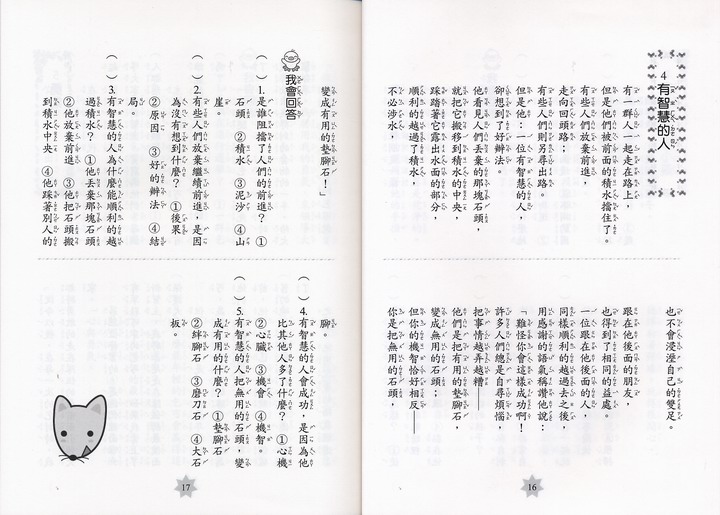 4 有智慧的人
有一群人一起走在路上，
但是他們被前面的積水擋住了。
有些人們放棄前進，
走向回頭路；
有些人們則另尋出路。
但是他：一位有智慧的人，
卻想到了好辦法。
他看見人們丟棄的那塊石頭，
就把它搬到積水的中央，
踩踏著它露出水面的部分，
順利的越過了積水，
不必涉水，
也不會浸溼自己的雙足。
跟在他後面的朋友，
也得到了相同的益處。
一位跟在他後面的人，
同樣順利的越過去之後，
用感謝的語氣稱讚他說：
「難怪你會這樣成功啊！
許多人們總是自尋煩惱，
把事情越弄越糟——
他們是把有用的墊腳石，
變成無用的石頭；
但你的機智恰好相反——
你是把無用的石頭，
16
變成有用的墊腳石！」
我會回答
（ ）1.是誰阻擋了人們的前進？ ①
石頭 ②積水 ③泥沙 ④山
崖。
（ ）2.有些人們放棄繼續前進，是因
為沒有想到什麼？ ①後果
②原因 ③好的辦法 ④結
局。
（ ）3.有智慧的人為什麼能順利的越
過積水？ ①他丟棄那塊石頭
②他放棄前進 ③他把石頭搬
到積水中央 ④他踩著別人的
腳。
（ ）4.有智慧的人會成功，是因為他
比其他人多了什麼？ ①心機
②心臟 ③機會 ④機智。
（ ）5.有智慧的人把無用的石頭，變
成有用的什麼？ ①墊腳石
②絆腳石 ③磨刀石 ④大石
板。
17